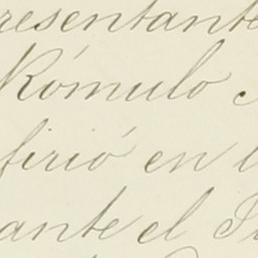 resentante
Rómulo
firió en l
ante el